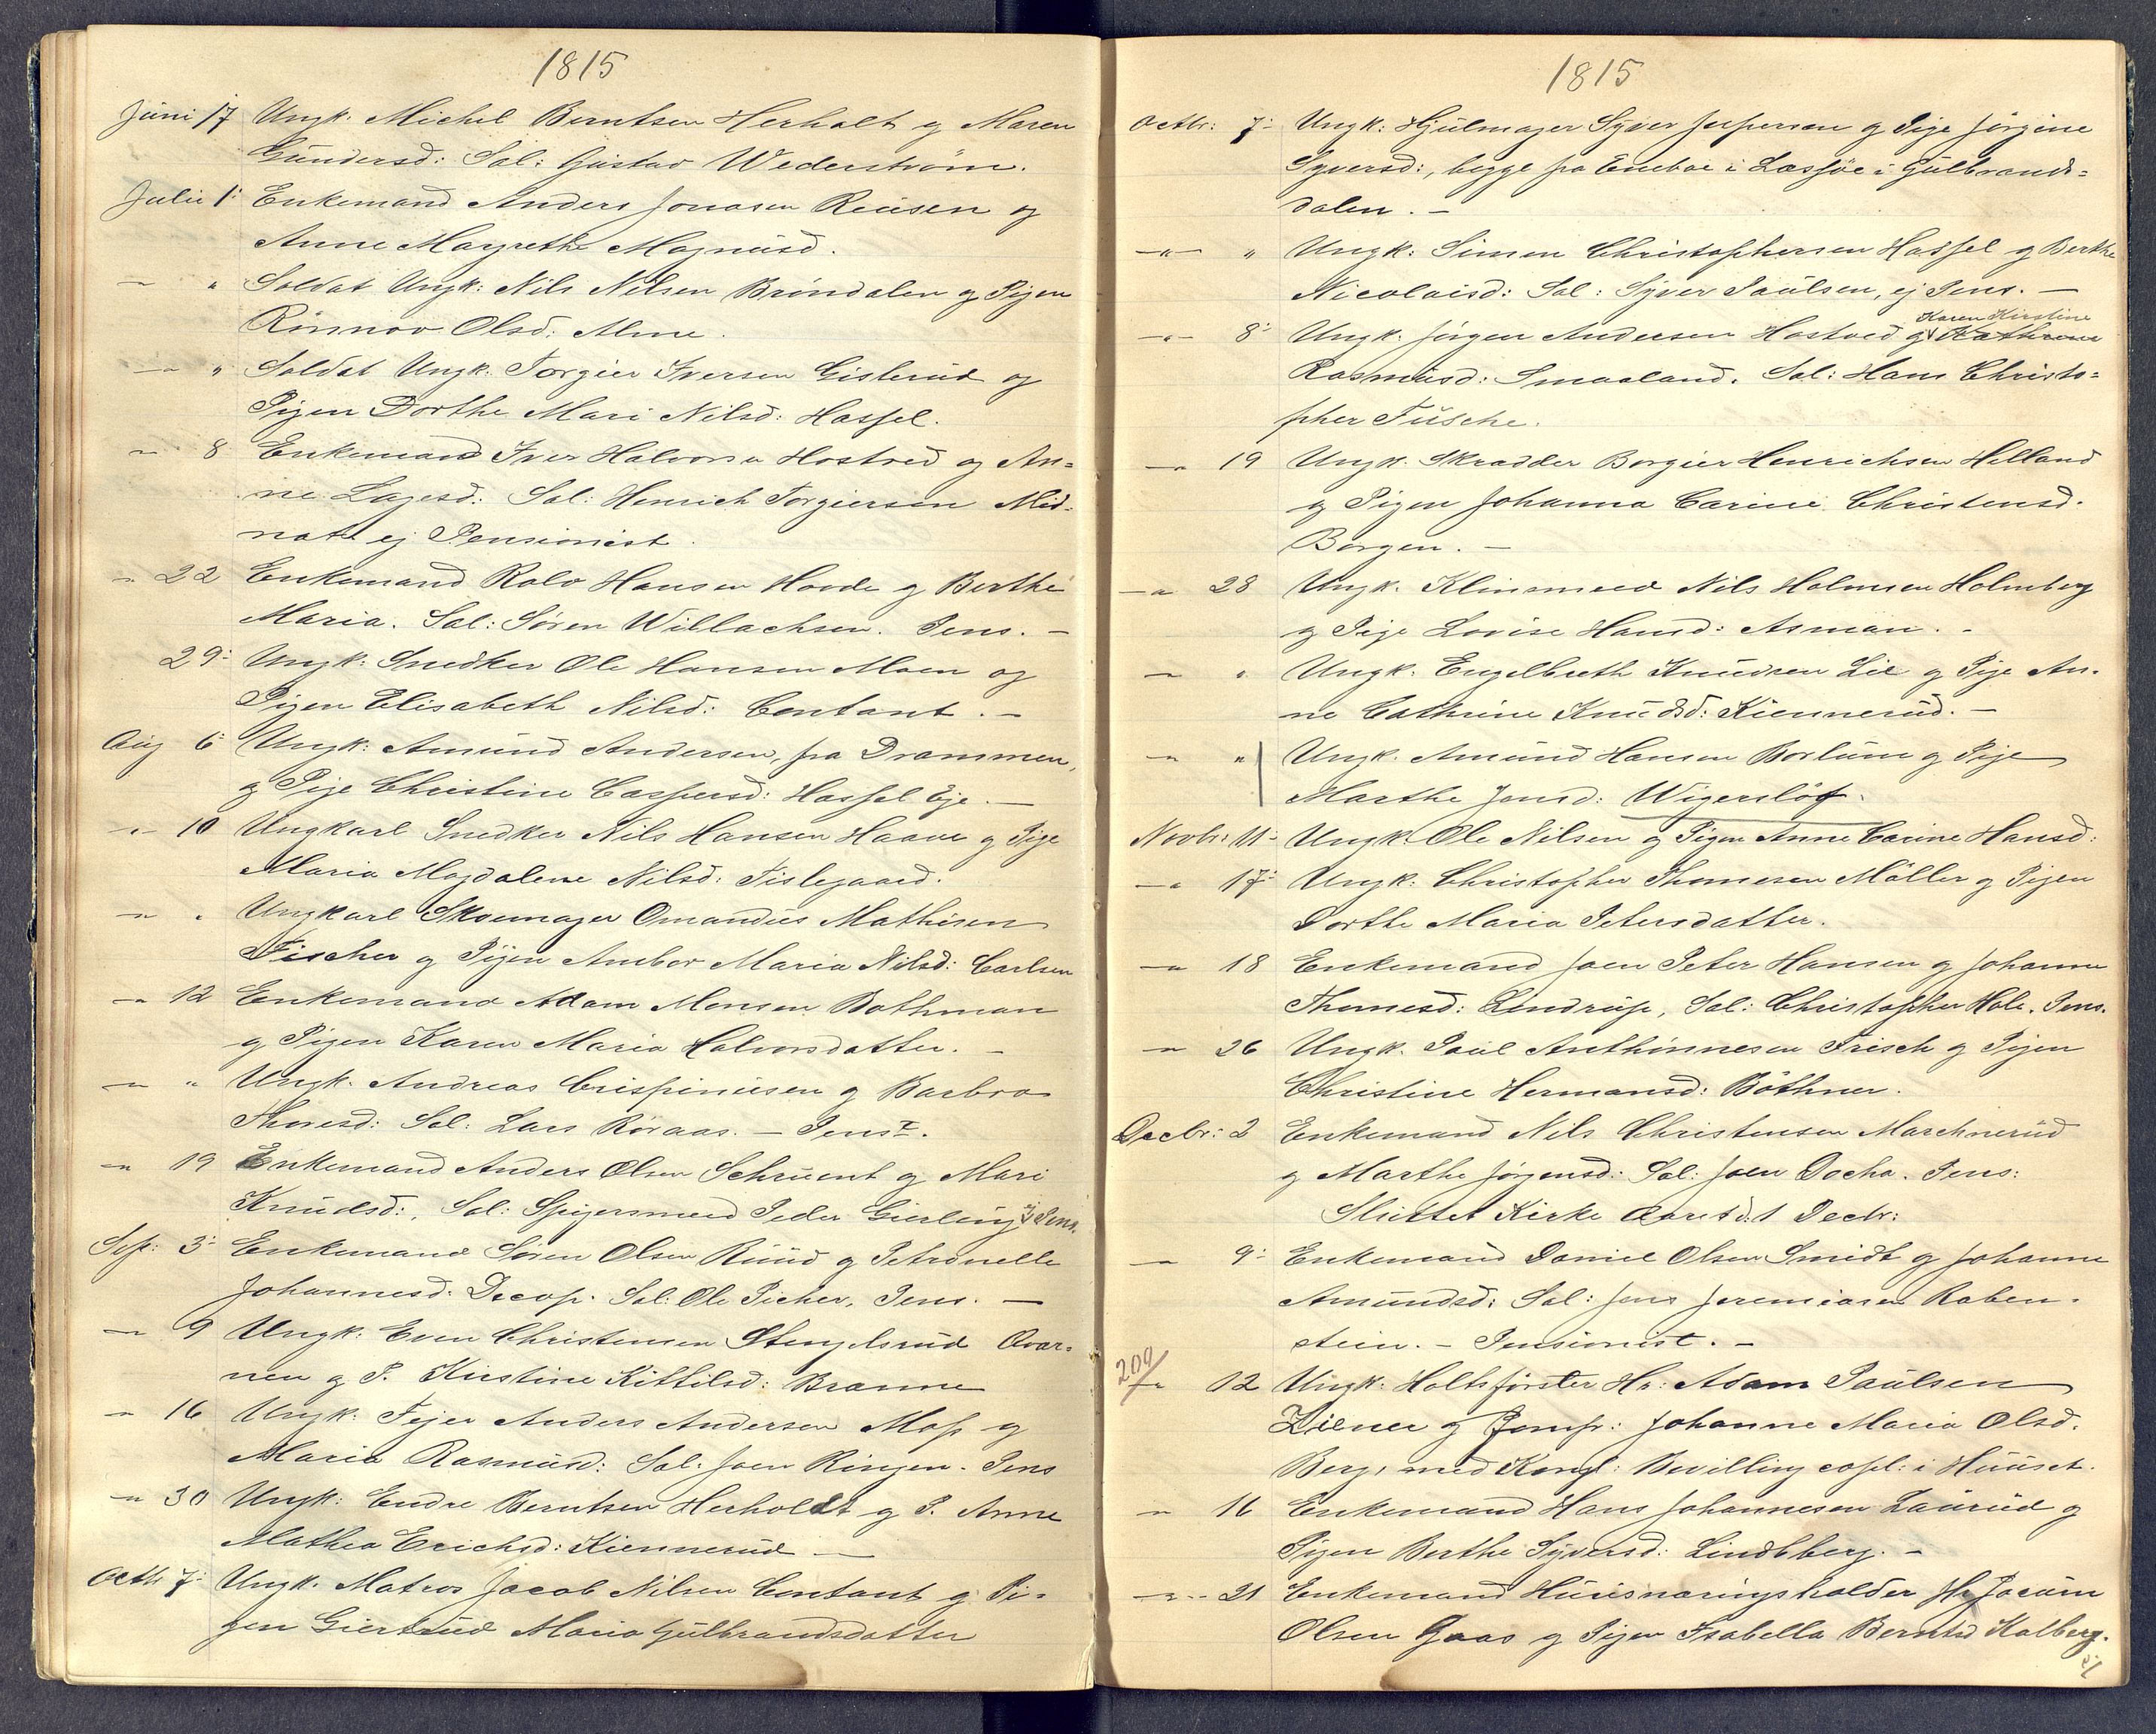 1815
Juni 17 Ungk. Michel Berntsen Herholt og Maren
Gundersd: Sal: Gustav Wederström.
Julii 1: Enkemand Anders Jonasen Reusen og
Anne Magrethe Magnusd.
— " Soldat Ungk: Nils Nilsen Bröndalen og Pigen
Rönnov Olsd. Alme.
— " Soldat Ungk. Torgier Iversen Gislerud og
Pigen Dorthe Mari Nilsd: Hassel.
— 8 Enkemand Iver Halvorsen Hostved og An=
ne Lagesd: Sal: Henrich Torgiersen Mid=
nat ej Pensionist.
— 22 Enkemand Rolv Hansen Hovde og Berthe
Maria. Sal: Sören Willachsen. Pens. —
29: Ungk: Snedker Ole Hansen Moen og
Pigen Elisabeth Nilsd: Contant. —
Aug 6 Ungk: Amund Andersen, fra Drammen,
og Pige Christine Caspersd: Hassel Eje. —
— 10 Ungkarl Snedker Nils Hansen Haave og Pige
Maria Magdalene Nilsd: Tislegaard.
— " Ungkarl Skoemager Omandus Mathisen
Fischer og Pigen Ambor Maria Nilsd: Carlsen
— 12 Enkemand Adam Monsen Bothman
og Pigen Karen Maria Halvorsdatter. —
— " Ungk. Andreas Crispinusen og Barbro
Thoresd: Sal: Lars Röraas. — Penst.
— 19 Enkemand Anders Olsen Schruent og Mari
Knudsd:, Sal: Spigersmed Peder Gierling ej Pens.
Sep: 3: Enkemand Sören Olsen Ruud og Petronelle
Johannesd. Decop. Sal: Ole Picher, Pens. —
— 9 Ungk: Even Christensen Stengelsrud Qvar=
nen og P. Kirstine Kittilsd: Branne
— 16 Ungk: Fejer Anders Andersen Moss og
Maria Rasmusd: Sal. Joen Ringen. Pens
— 30 Ungk: Endre Berntsen Herholdt og P. Anne
Mathea Erichsd: Kiennerud —
Octbr 7: Ungk. Matros Jacob Nilsen Contant og Pi=
gen Giertrud Maria Gulbrandsdatter
1815
Octbr: 7: Ungk: Hjulmager Syver Jespersen og Pige Jörgine
Syversd:, begge fra Eneboe i Lassöe i Gulbrands=
dalen. —
— " Ungk: Simen Christophersen Hassel og Berthe
Nicolaisd: Sal: Syver Paulsen, ej Pens. —
Karen Kirstine
— 8: Ungk. Jörgen Andersen Hostved og Kathrine
Rasmusd: Smaaland. Sal: Hans Christo=
pher Tusche.
— 19 Ungk. Skradder Borgier Henrichsen Helland
og Pigen Johanna Carine Christensd.
Borgen. —
— 28 Ungk. Klinsmed Nils Halmsen Holmberg
og Pige Lovise Hansd: Asman. —
— " Ungk. Engelbreth Knudsen Lie og Pige An=
ne Cathrine Knudsd: Kiennerud. —
— " Ungk. Amund Hansen Borlum og Pige
Marthe Jensd: Wigerslöf.
Novbr: 11 — Ungk. Ole Nilsen og Pigen Anne Carine Hansd:
— 17: Ungk: Christopher Thomesen Möller og Pigen
Dorthe Maria Petersdatter.
— 18 Enkemand Joen Peter Hansen og Johanne
Thomesd: Lendrup, Sal: Christopher Hole. Pens.
— 26 Ungk. Paul Anthonnesen Frisch og Pigen
Christine Hermansd: Böthner.
Decbr: 2 Enkemand Nils Christensen Marchnerud
og Marthe Jörgensd: Sal: Joen Docha. Pens:
Sluttet Kirke Aaret d: 1 Decbr:
— 9: Enkemand Daniel Olsen Smidt og Johanne
Amundsd: Sal: Jens Jeremiasen Raben=
stein. — Pensionist. —
209
— 12 Ungk: Holtsförster Hr: Adam Paulsen
Ziener og Jomfr: Johanne Maria Olsd.
Berg, med Kongl: Bevilling copl: i Huuset.
— 16 Enkemand Hans Johannesen Laurud og
Pigen Berthe Syversd: Lindbberg. —
— 21 Enkemand Huusnaringsholder Hr Jocum
Olsen Gaas og Pigen Isabella Berntsd Kalberg.